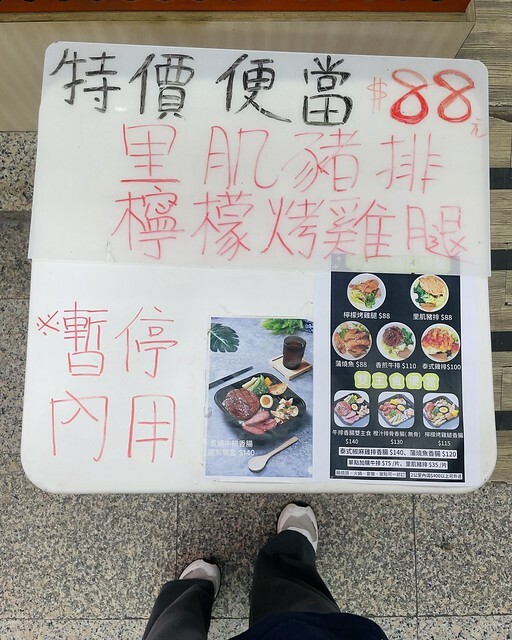 特價便當 $88元
里肌豬排
檸檬烤雞腿
※暫停
內用
檸檬烤雞腿 $88
里肌豬排 $88
蒲燒魚 $88
香煎牛排 $110
泰式雞排 $100
牛排香腸雙主食
$140
橙汁排骨香腸(無骨)
$130
檸檬烤雞腿香腸
$115
泰式椒麻雞排香腸 $140、蒲燒魚香腸 $120
單點加購牛排 $75/片、里肌豬排 $35/片
$140